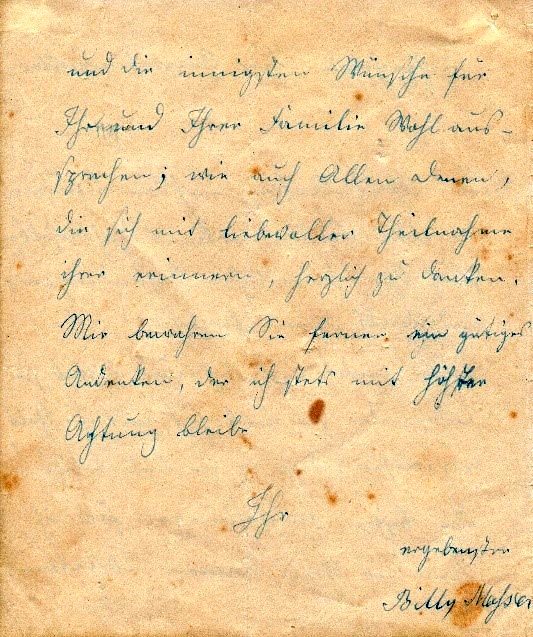 und die innigsten Wünsche für
Ihr und Ihrer Familie Wohl aus-
sprechen; wie auch Allen denen,
die sich mit liebevoller Theilnahme
ihrer erinnern, herzlich zu danken.
Mir bewahren Sie ferner ein gütiges
Andenken, der ich stets mit höchster
Achtung bleibe
Ihr
ergebenster
Billy